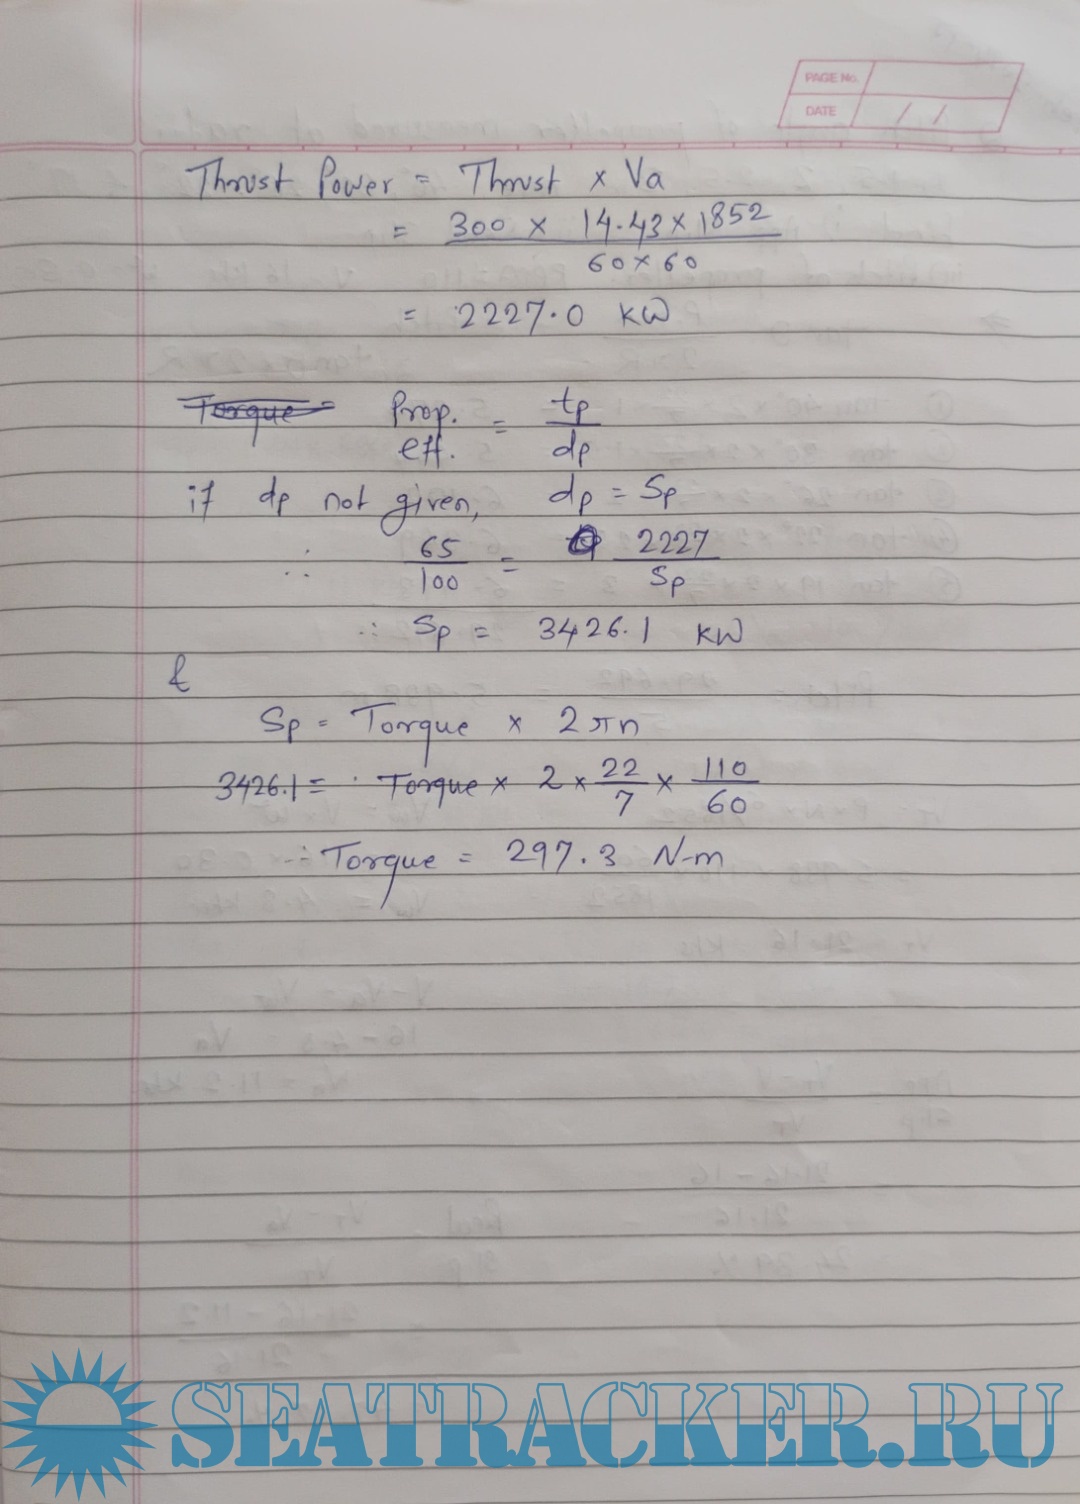 PAGE No.
DATE / /
Thrust Power = Thrust × Va
= 300 × 14.43 × 1852
60 × 60
= 2227.0 kW
Torque = Prop. eff. = tp
dp
if dp not given, dp = Sp
∴ 65 = 2227
100 Sp
∴ Sp = 3426.1 kW
&
Sp = Torque × 2πn
3426.1 = Torque × 2 × 22 × 110
7 60
∴ Torque = 297.3 N-m
SEATRACKER.RU